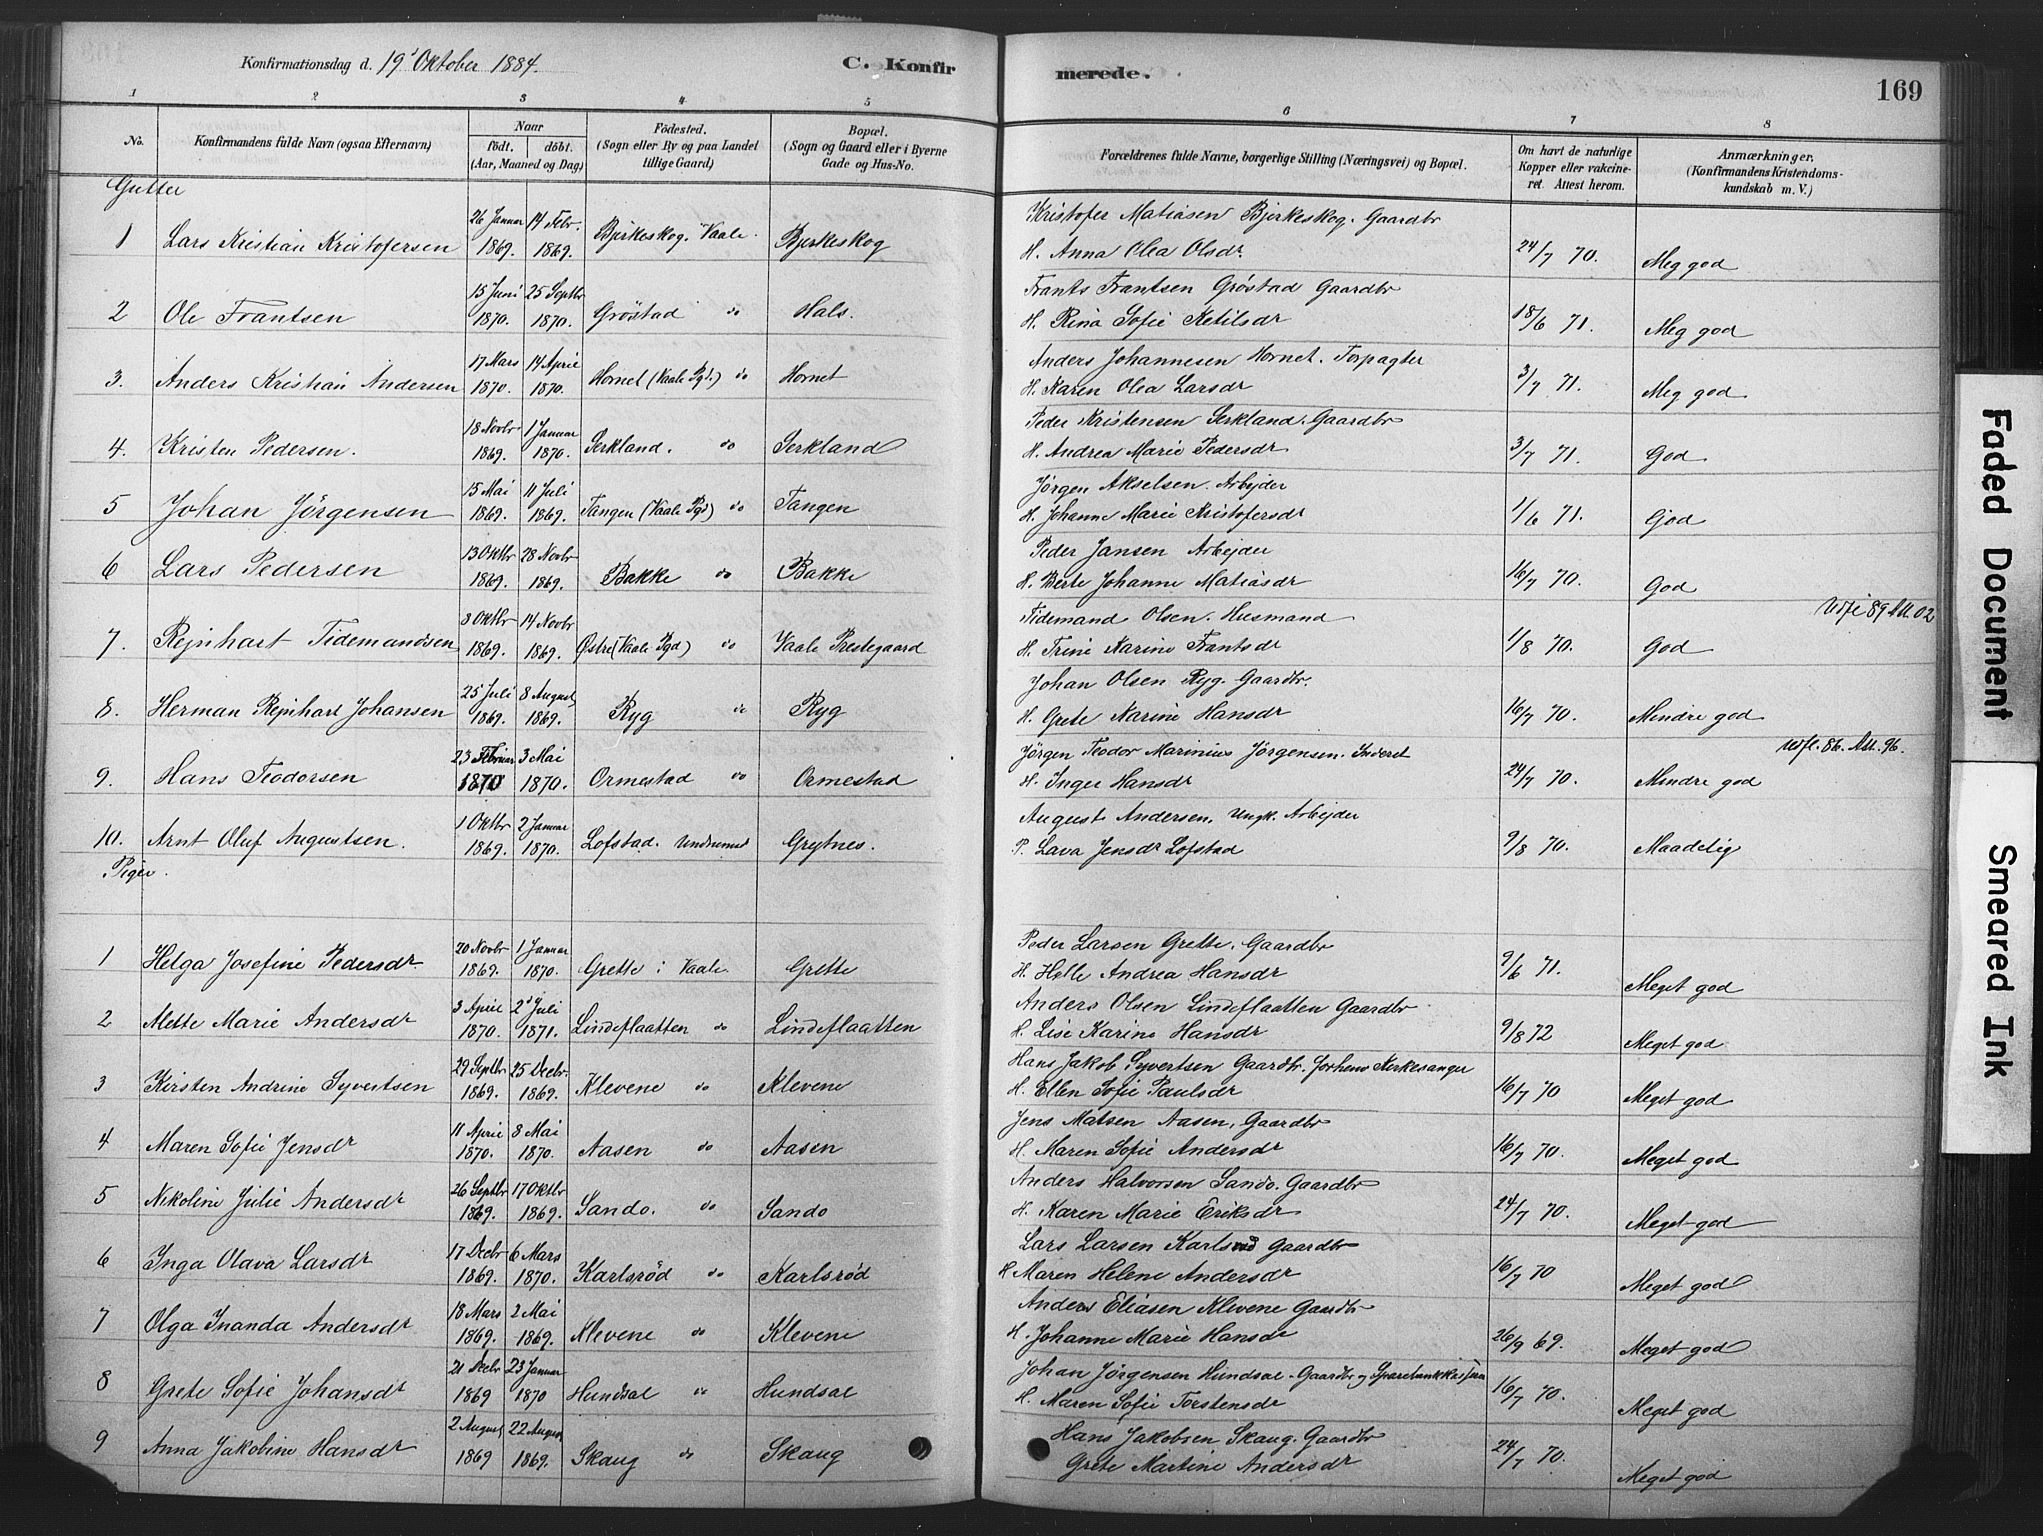 Konfirmationsdag d. 19' Oktober 1884. C. Konfirmerede. 169
1 2 3 4 5 6 7 8
No. Konfirmandens fulde Navn (ogsaa Efternavn) Naar födt. döbt. (Aar, Maaned og Dag) Födested. (Sogn eller By og paa Landet tillige Gaard) Bopæl. (Sogn og Gaard eller i Byerne Gade og Hus-No. Forældrenes fulde Navne, borgerlige Stilling (Næringsvei) og Bopæl. Om havt de naturlige Kopper eller vakcineret Attest herom. Anmærkninger. (Konfirmandens Kristendomskundskab m. V.)
Gutter
1 Lars Kristian Kristofersen 26 Januar 1869. 14 Febr. 1869. Bjerkeskog. Vaale. Bjerkeskog Kristofer Matiasen Bjerkeskog. Gaardbr H. Anna Olea Olsdr. 24/7 70. Meg god
2 Ole Frantsen 15 Juni 1870. 25 Septbr 1870. Gröstad do Hals. Frants Frantsen Grøstad Gaardbr H. Rina Sofie Ketilsdr 18/6 71. Meg god
3. Anders Kristian Andersen 17 Mars 1870. 14 April 1870. Hornet (Vaale Pgd.) do Hornet Anders Johannesen Hornet. Forpagter H. Karen Olea Larsdr 3/7 71. Meg god
4. Kristen Pedersen. 18 Novbr 1869. 1 Januar 1870. Serkland. do Serkland Peder Kristensen Serkland. Gaardbr H. Andrea Marie Pedersdr 3/7 71. God
5 Johan Jörgensen 15 Mai 1869. 11 Juli 1869. Tangen (Vaale Pgd) do Tangen Jørgen Akselsen. Arbejder H. Johanne Marie Kristofersdr 1/6 71. God
6 Lars Pedersen 13 Oktbr 1869. 28 Novbr 1869. Bakke do Bakke Peder Jansen Arbejder H. Berte Johanne Matiasdr 16/7 70. God
7. Rejnhart Tidemandsen 3 Oktbr 1869. 14 Novbr 1869. Østre (Vaale Pgd) do Vaale Prestegaard Tidemand Olsen. Husmand H. Trine Karine Frantsdr 1/8 70. God Udfl 89 Att. 02
8. Herman Rejnhart Johansen 25 Juli 1869. 8 August 1869. Ryg do Ryg Johan Olsen Ryg. Gaardbr. H. Grete Karine Hansdr 16/7 70. Mindre god
9. Hans Teodorsen 23 Februar 1870 3 Mai 1870. Ormestad do Ormestad Jörgen Teodor Marinius Jørgensen. Inderst H. Inger Hansdr 24/7 70. Mindre god Udfl. 86. Att. 96.
10. Arnt Oluf Augustsen. 1 Oktbr 1869. 2 Januar 1870. Lofstad. Undrumsd Grejtnes. August Andersen. Ungk. Arbejder P. Lava Jensdr Lofstad 9/8 70. Maadelig
Piger.
1 Helga Josefine Pedersdr. 20 Novbr 1869. 1 Januar 1870. Grette i Vaale. Grette Peder Larsen Grette. Gaardbr H. Helle Andrea Hansdr 9/6 71. Meget god
2 Mette Marie Andersdr 3 April 1870. 2' Juli 1871. Lindeflaatten do Lindeflaatten Anders Olsen Lindeflaatten Gaardbr H. Lise Karine Hansdr 9/8 72 Meget god
3 Kirsten Andrine Syvertsen 29 Septbr 1869. 25 Decbr. 1869. Klevene do Klevene Hans Jakob Syvertsen Gaardbr. forhenv Kirkesanger H. Ellen Sofie Paulsdr 16/7 70 Meget god
4 Maren Sofie Jensdr 11 April 1870. 8 Mai 1870. Aasen do Aasen Jens Matsen Aasen, Gaardbr H. Maren Sofie Andersdr 16/7 70. Meget god
5 Nikoline Julie Andersdr 26 Septbr 1869. 17 Oktbr 1869. Sando. do Sando Anders Halvorsen Sando. Gaardbr H. Karen Marie Eriksdr 24/7 70. Meget god
6 Inga Olava Larsdr 17 Decbr 1869. 6 Mars 1870. Karlsrød do Karlsrød Lars Larsen Karlsrød Gaardbr H Maren Helene Andersdr 16/7 70 Meget god
7 Olga Inanda Andersdr 18 Mars 1869. 2 Mai 1869. Klevene do Klevene Anders Eliasen Klevene Gaardbr H. Johanne Marie Hansdr 26/9 69. Meget god
8 Grete Sofie Johansdr 21 Decbr 1869 23 Januar 1870 Hundsal do Hundsal Johan Jörgensen Hundsal. Gaardbr og Sparebankkasserer H. Maren Sofie Torstensdr 16/7 70. Meget god
9 Anna Jakobine Hansdr 2 August 1869 22 August 1869. Skaug do Skaug Hans Jakobsen Skaug. Gaardbr Grete Martine Andersdr 24/7 70. Meget god
Faded Document
Smeared Ink